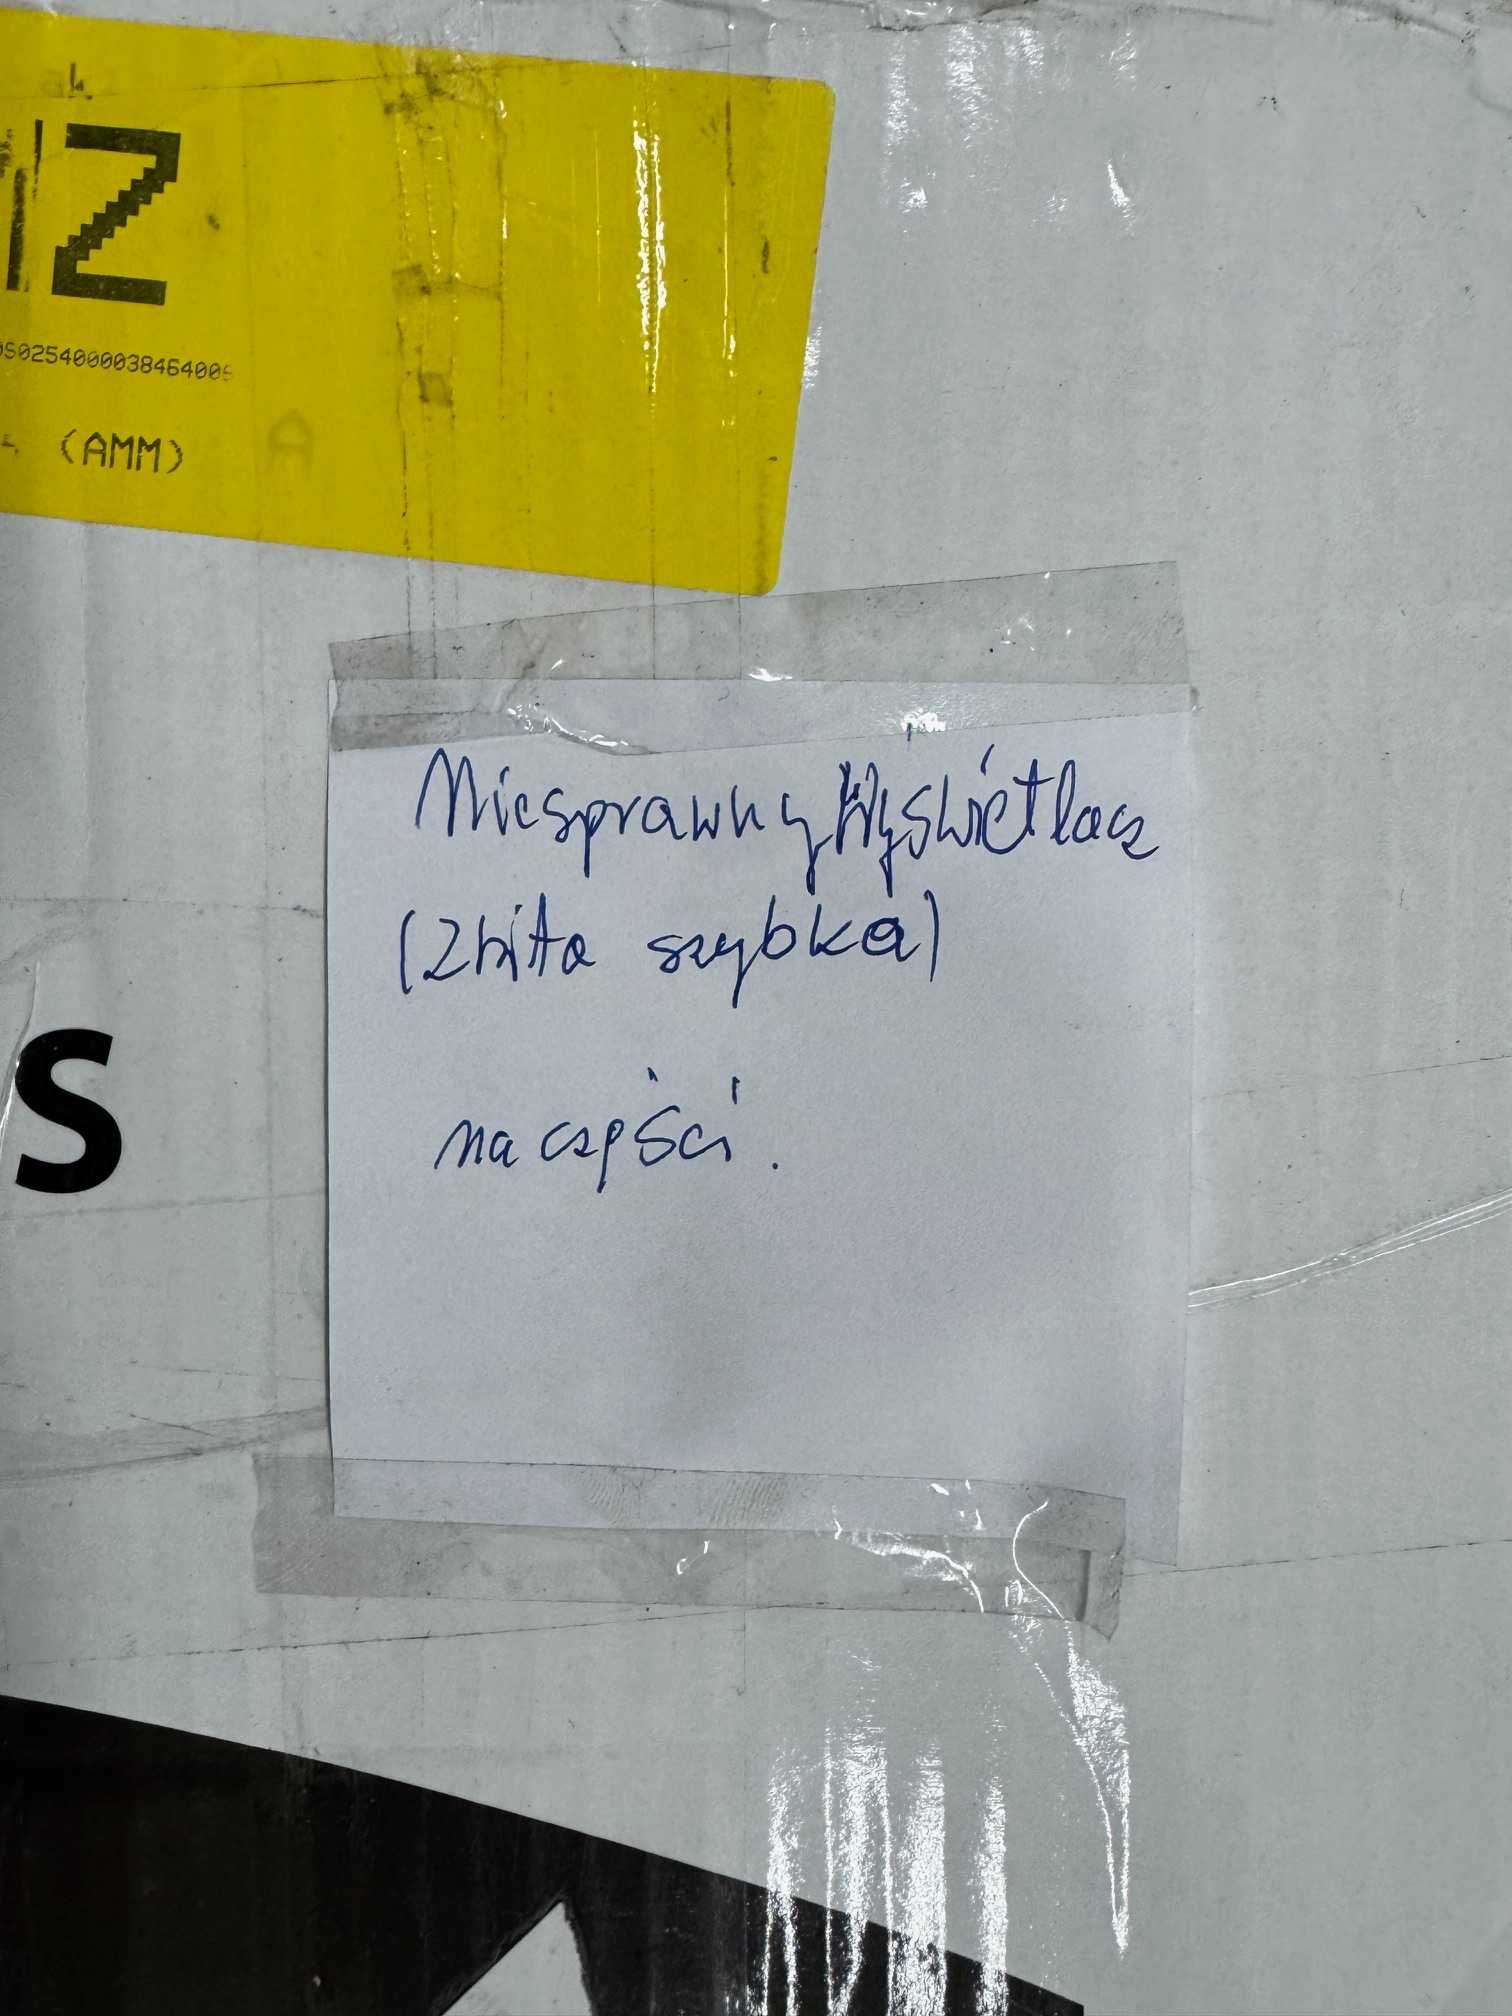 Z
05025400003846400
(AMM) A
Niesprawny Wyświetlacz
(Zbita szybka)
S
na części.